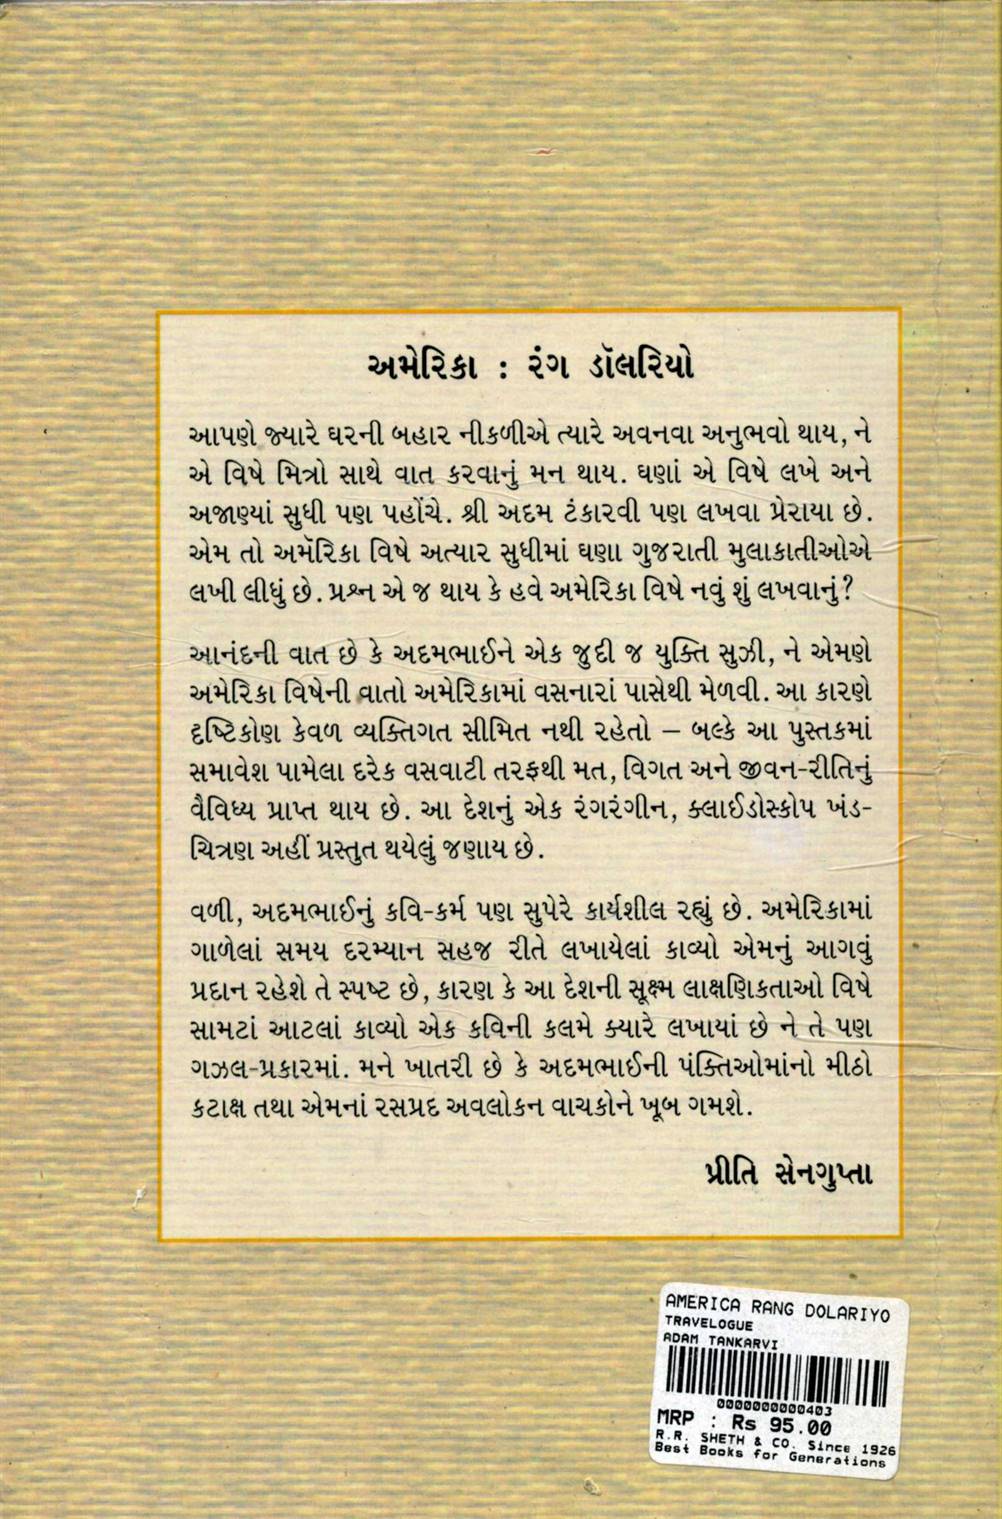 અમેરિકા : રંગ ડૉલરિયો
આપણે જ્યારે ઘરની બહાર નીકળીએ ત્યારે અવનવા અનુભવો થાય, ને
એ વિષે મિત્રો સાથે વાત કરવાનું મન થાય. ઘણાં એ વિષે લખે અને
અજાણ્યાં સુધી પણ પહોંચે. શ્રી અદમ ટંકારવી પણ લખવા પ્રેરાયા છે.
એમ તો અમૅરિકા વિષે અત્યાર સુધીમાં ઘણા ગુજરાતી મુલાકાતીઓએ
લખી લીધું છે. પ્રશ્ન એ જ થાય કે હવે અમેરિકા વિષે નવું શું લખવાનું?
આનંદની વાત છે કે અદમભાઈને એક જુદી જ યુક્તિ સુઝી, ને એમણે
અમેરિકા વિષેની વાતો અમેરિકામાં વસનારાં પાસેથી મેળવી. આ કારણે
દૃષ્ટિકોણ કેવળ વ્યક્તિગત સીમિત નથી રહેતો – બલ્કે આ પુસ્તકમાં
સમાવેશ પામેલા દરેક વસવાટી તરફથી મત, વિગત અને જીવન-રીતિનું
વૈવિધ્ય પ્રાપ્ત થાય છે. આ દેશનું એક રંગરંગીન, ક્લાઈડોસ્કોપ ખંડ-
ચિત્રણ અહીં પ્રસ્તુત થયેલું જણાય છે.
વળી, અદમભાઈનું કવિ-કર્મ પણ સુપેરે કાર્યશીલ રહ્યું છે. અમેરિકામાં
ગાળેલાં સમય દરમ્યાન સહજ રીતે લખાયેલાં કાવ્યો એમનું આગવું
પ્રદાન રહેશે તે સ્પષ્ટ છે, કારણ કે આ દેશની સૂક્ષ્મ લાક્ષણિકતાઓ વિષે
સામટાં આટલાં કાવ્યો એક કવિની કલમે ક્યારે લખાયાં છે ને તે પણ
ગઝલ-પ્રકારમાં. મને ખાતરી છે કે અદમભાઈની પંક્તિઓમાંનો મીઠો
કટાક્ષ તથા એમનાં રસપ્રદ અવલોકન વાચકોને ખૂબ ગમશે.
પ્રીતિ સેનગુપ્તા
AMERICA RANG DOLARIYO
TRAVELOGUE
ADAM TANKARVI
0000000000403
MRP : Rs 95.00
R.R. SHETH & CO. Since 1926
Best Books for Generations